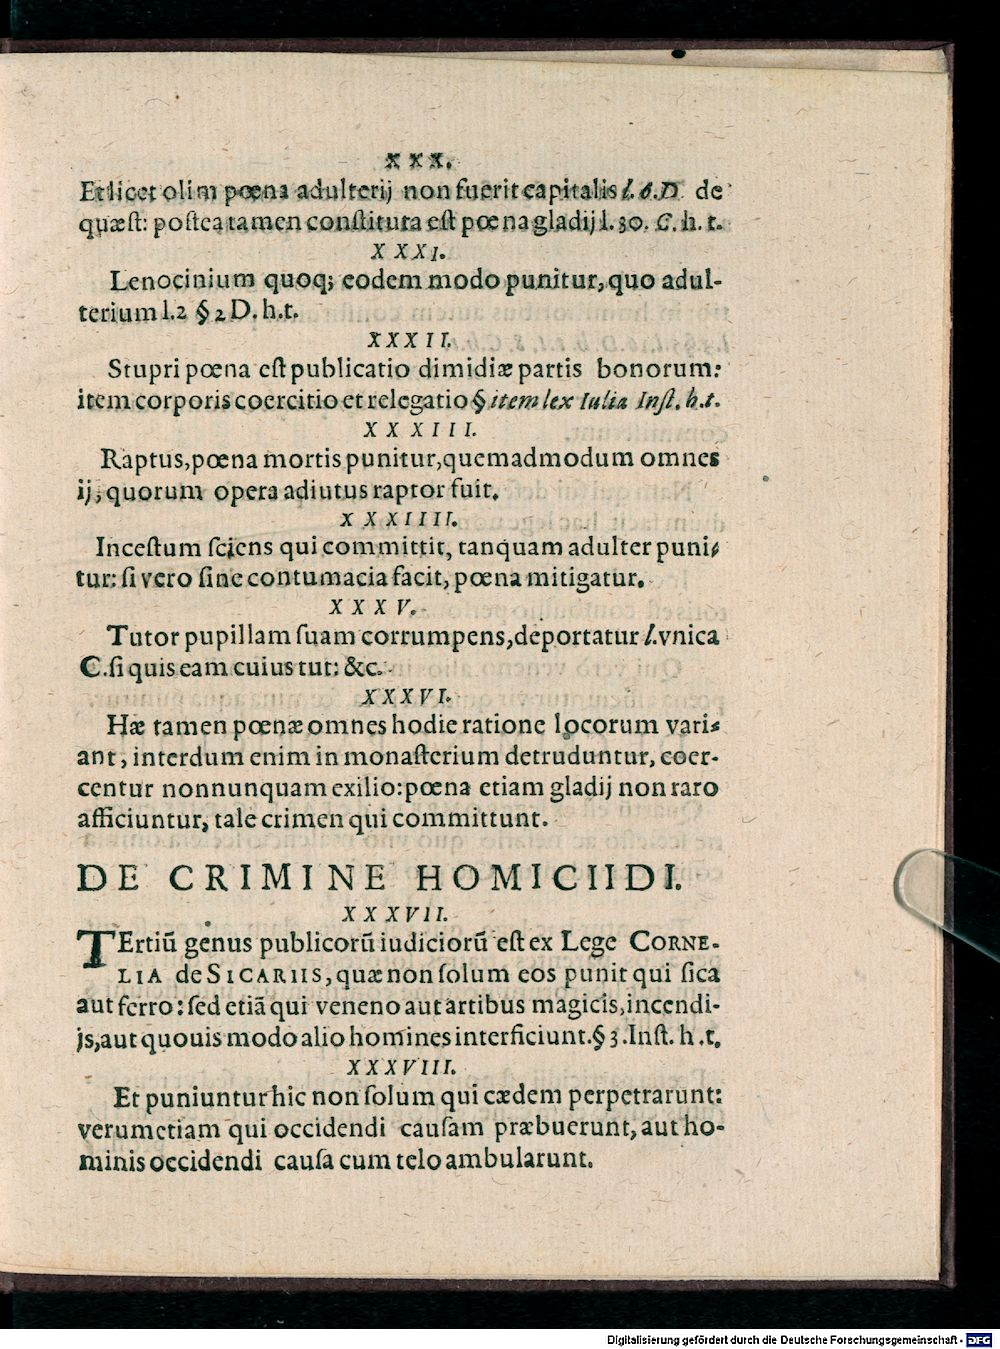 XXX.
Et licet olim pœna adulterij non fuerit capitalis l. 6. D. de
quæst: postea tamen constituta est pœna gladij l. 30. C. h. t.
XXXI.
Lenocinium quoq; eodem modo punitur, quo adul-
terium l.2 § 2 D. h.t.
XXXII.
Stupri pœna est publicatio dimidiæ partis bonorum:
item corporis coercitio et relegatio § item lex Iulia Inst. h.t.
XXXIII.
Raptus, pœna mortis punitur, quemadmodum omnes
ij, quorum opera adiutus raptor fuit.
XXXIIII.
Incestum sciens qui committit, tanquam adulter puni-
tur: si vero sine contumacia facit, pœna mitigatur.
XXXV.
Tutor pupillam suam corrumpens, deportatur l. vnica
C. si quis eam cuius tut: &c.
XXXVI.
Hæ tamen pœnæ omnes hodie ratione locorum vari-
ant, interdum enim in monasterium detruduntur, coer-
centur nonnunquam exilio: pœna etiam gladij non raro
afficiuntur, tale crimen qui committunt.
DE CRIMINE HOMICIIDI.
XXXVII.
TErtiũ genus publicorũ iudiciorũ est ex Lege CORNE-
LIA de SICARIIS, quæ non solum eos punit qui sica
aut ferro: sed etiã qui veneno aut artibus magicis, incendi-
js, aut quouis modo alio homines interficiunt. § 3. Inst. h.t.
XXXVIII.
Et puniuntur hic non solum qui cædem perpetrarunt:
verumetiam qui occidendi causam præbuerunt, aut ho-
minis occidendi causa cum telo ambularunt.
Digitalisierung gefördert durch die Deutsche Forschungsgemeinschaft - DFG